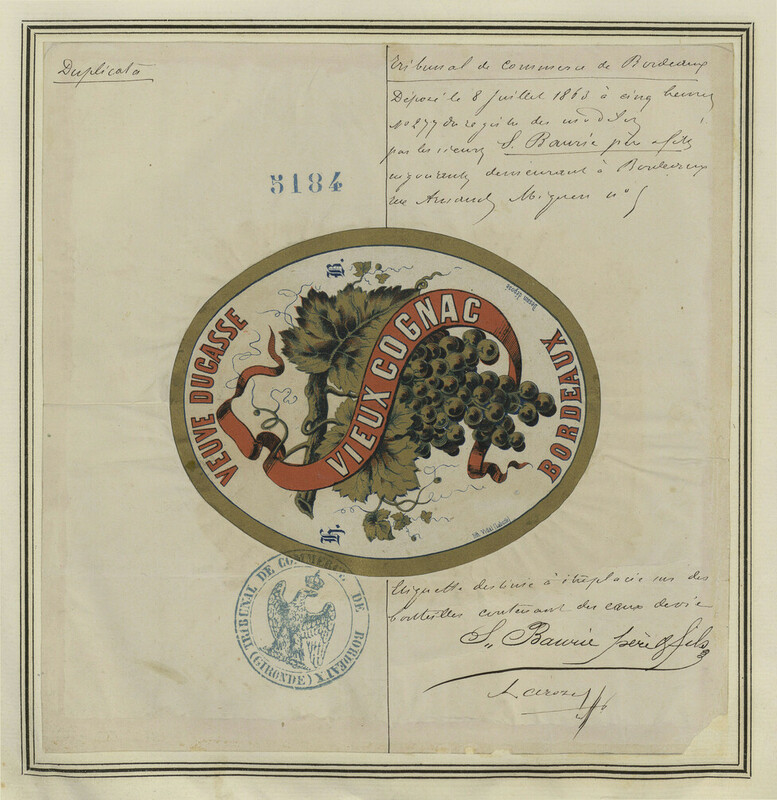 Duplicata
Tribunal de commerce de Bordeaux
Déposé le 8 Juillet 1863 à cinq heures
No 277 du registre des modèles
par les sieurs S. Baurie père & fils
négociants demeurant à Bordeaux
rue Arnaud Miqueu no 5
5184
B.
VEUVE DUCASSE
VIEUX COGNAC
BORDEAUX
déposé
Lith. Vidal
TRIBUNAL DE COMMERCE DE BORDEAUX
(GIRONDE)
Etiquette destinée à être placée sur des
bouteilles contenant des eaux de vie
S. Baurie père & fils